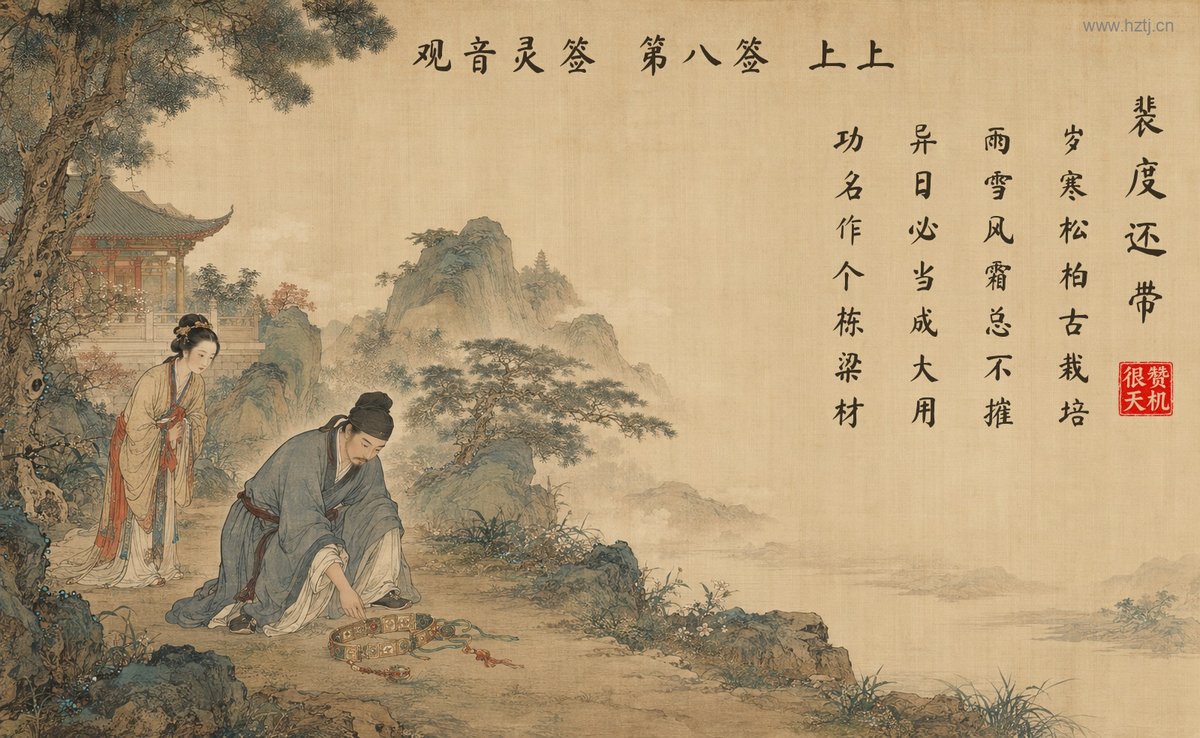 www.hztj.cn
观音灵签 第八签 上上
裴度还带
岁寒松柏古栽培
雨雪风霜总不摧
异日必当成大用
功名作个栋梁材
赞机
很天